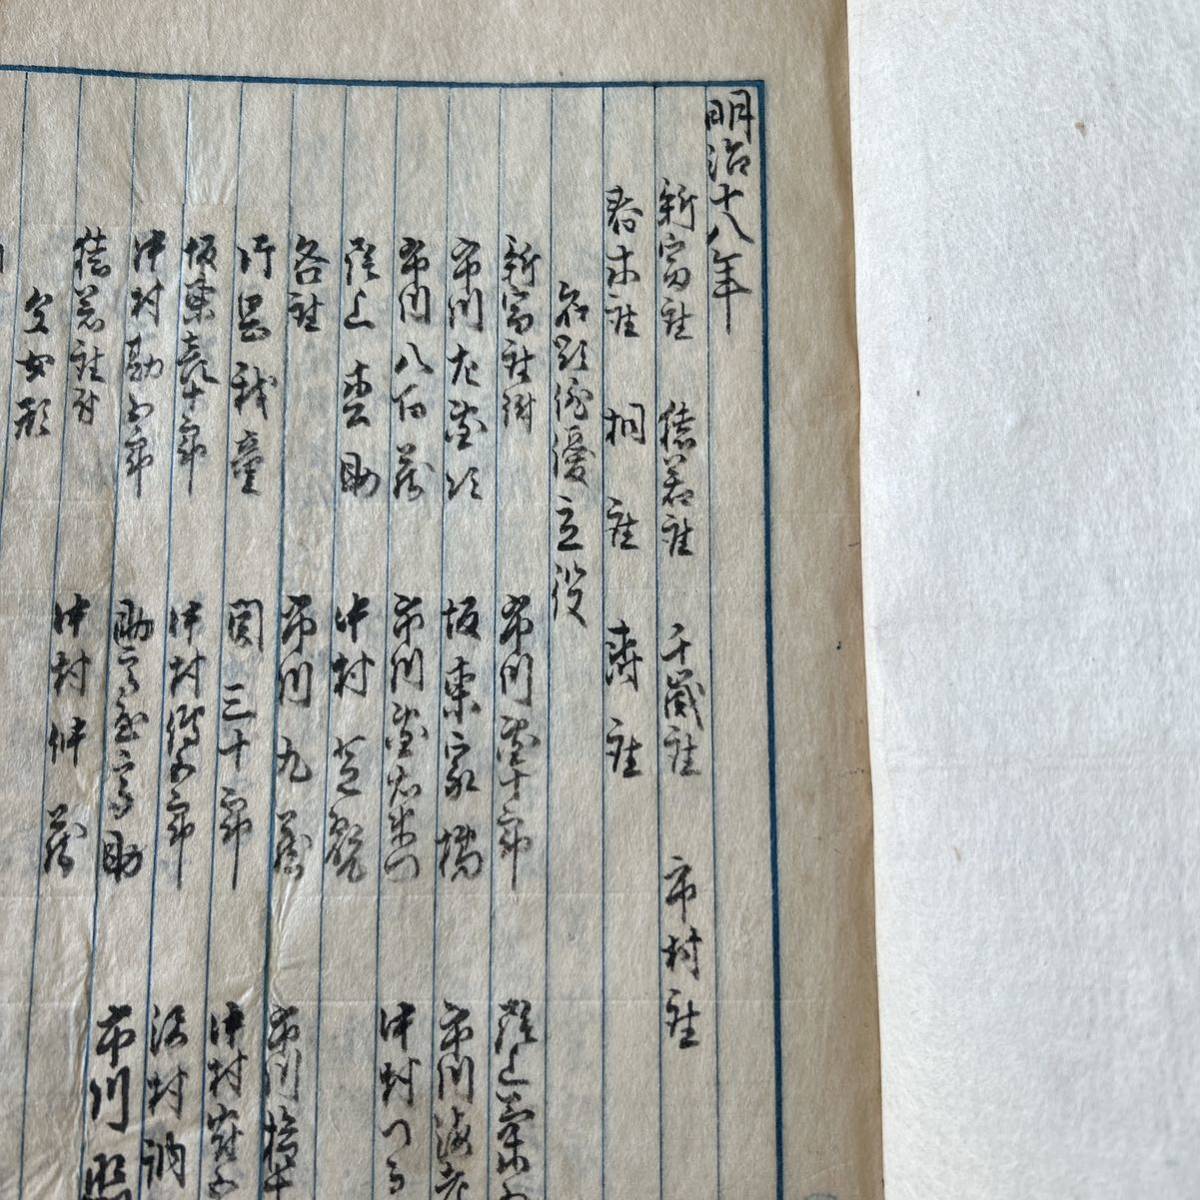 明治十八年
新富座 猿若座 千歳座 市村座
春木座 桐座 寿座
名題俳優立役
新富座附 市川団十郎 尾上菊五
市川左団次 坂東家橘 市川海老
市川八百蔵 市川団右衛門 中村つる
尾上松助 中村芝翫
各座 市川九蔵 市川
片岡我童 関三十郎 中村
坂東喜十郎 中村伝五郎 沢村訥
中村勘五郎 助高屋高助 市川
猿若座附 中村仲蔵
立女形